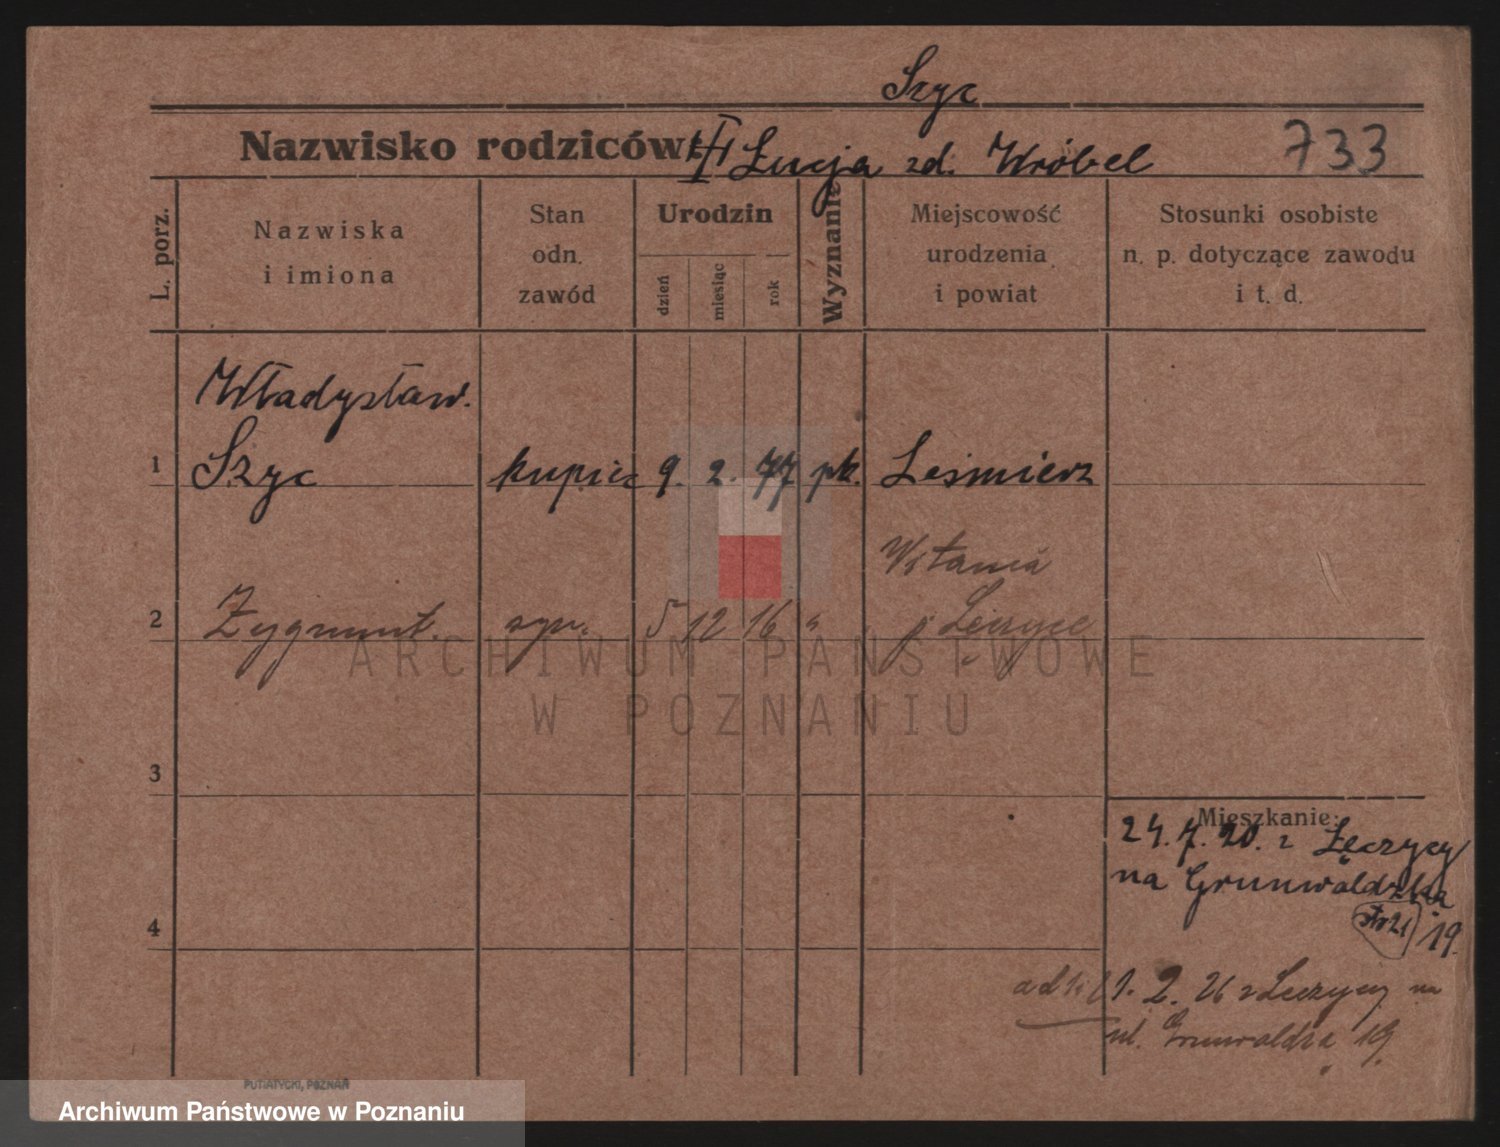 Szyc
Nazwisko rodziców: Łucja zd. Wróbel 733
L. porz.
Nazwiska
i imiona
Stan
odn.
zawód
Urodzin
dzień
miesiąc
rok
Wyznanie
Miejscowość
urodzenia
i powiat
Stosunki osobiste
n. p. dotyczące zawodu
i t. d.
Władysław.
1 Szyc kupiec 9. 2. 77 pk. Leśmierz
Witania
2 Zygmunt. syn. 5 12 16 " p. Łęczyce
ARCHIWUM PAŃSTWOWE
W POZNANIU
3
Mieszkanie:
24. 7. 20. z Łęczycy
na Grunwaldzka
19.
4
1. 2. 26 z Łęczycy na
ul. Grunwaldzka 19.
PUTIATYCKI, POZNAŃ
Archiwum Państwowe w Poznaniu